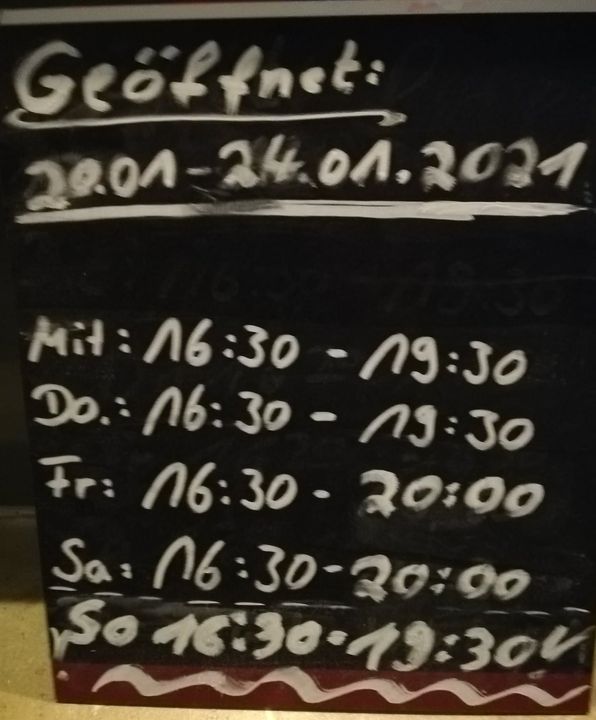 Geöffnet:
20.01-24.01.2021
Mit: 16:30 - 19:30
Do.: 16:30 - 19:30
Fr: 16:30 - 20:00
Sa: 16:30-20:00
So 16:30-19:30